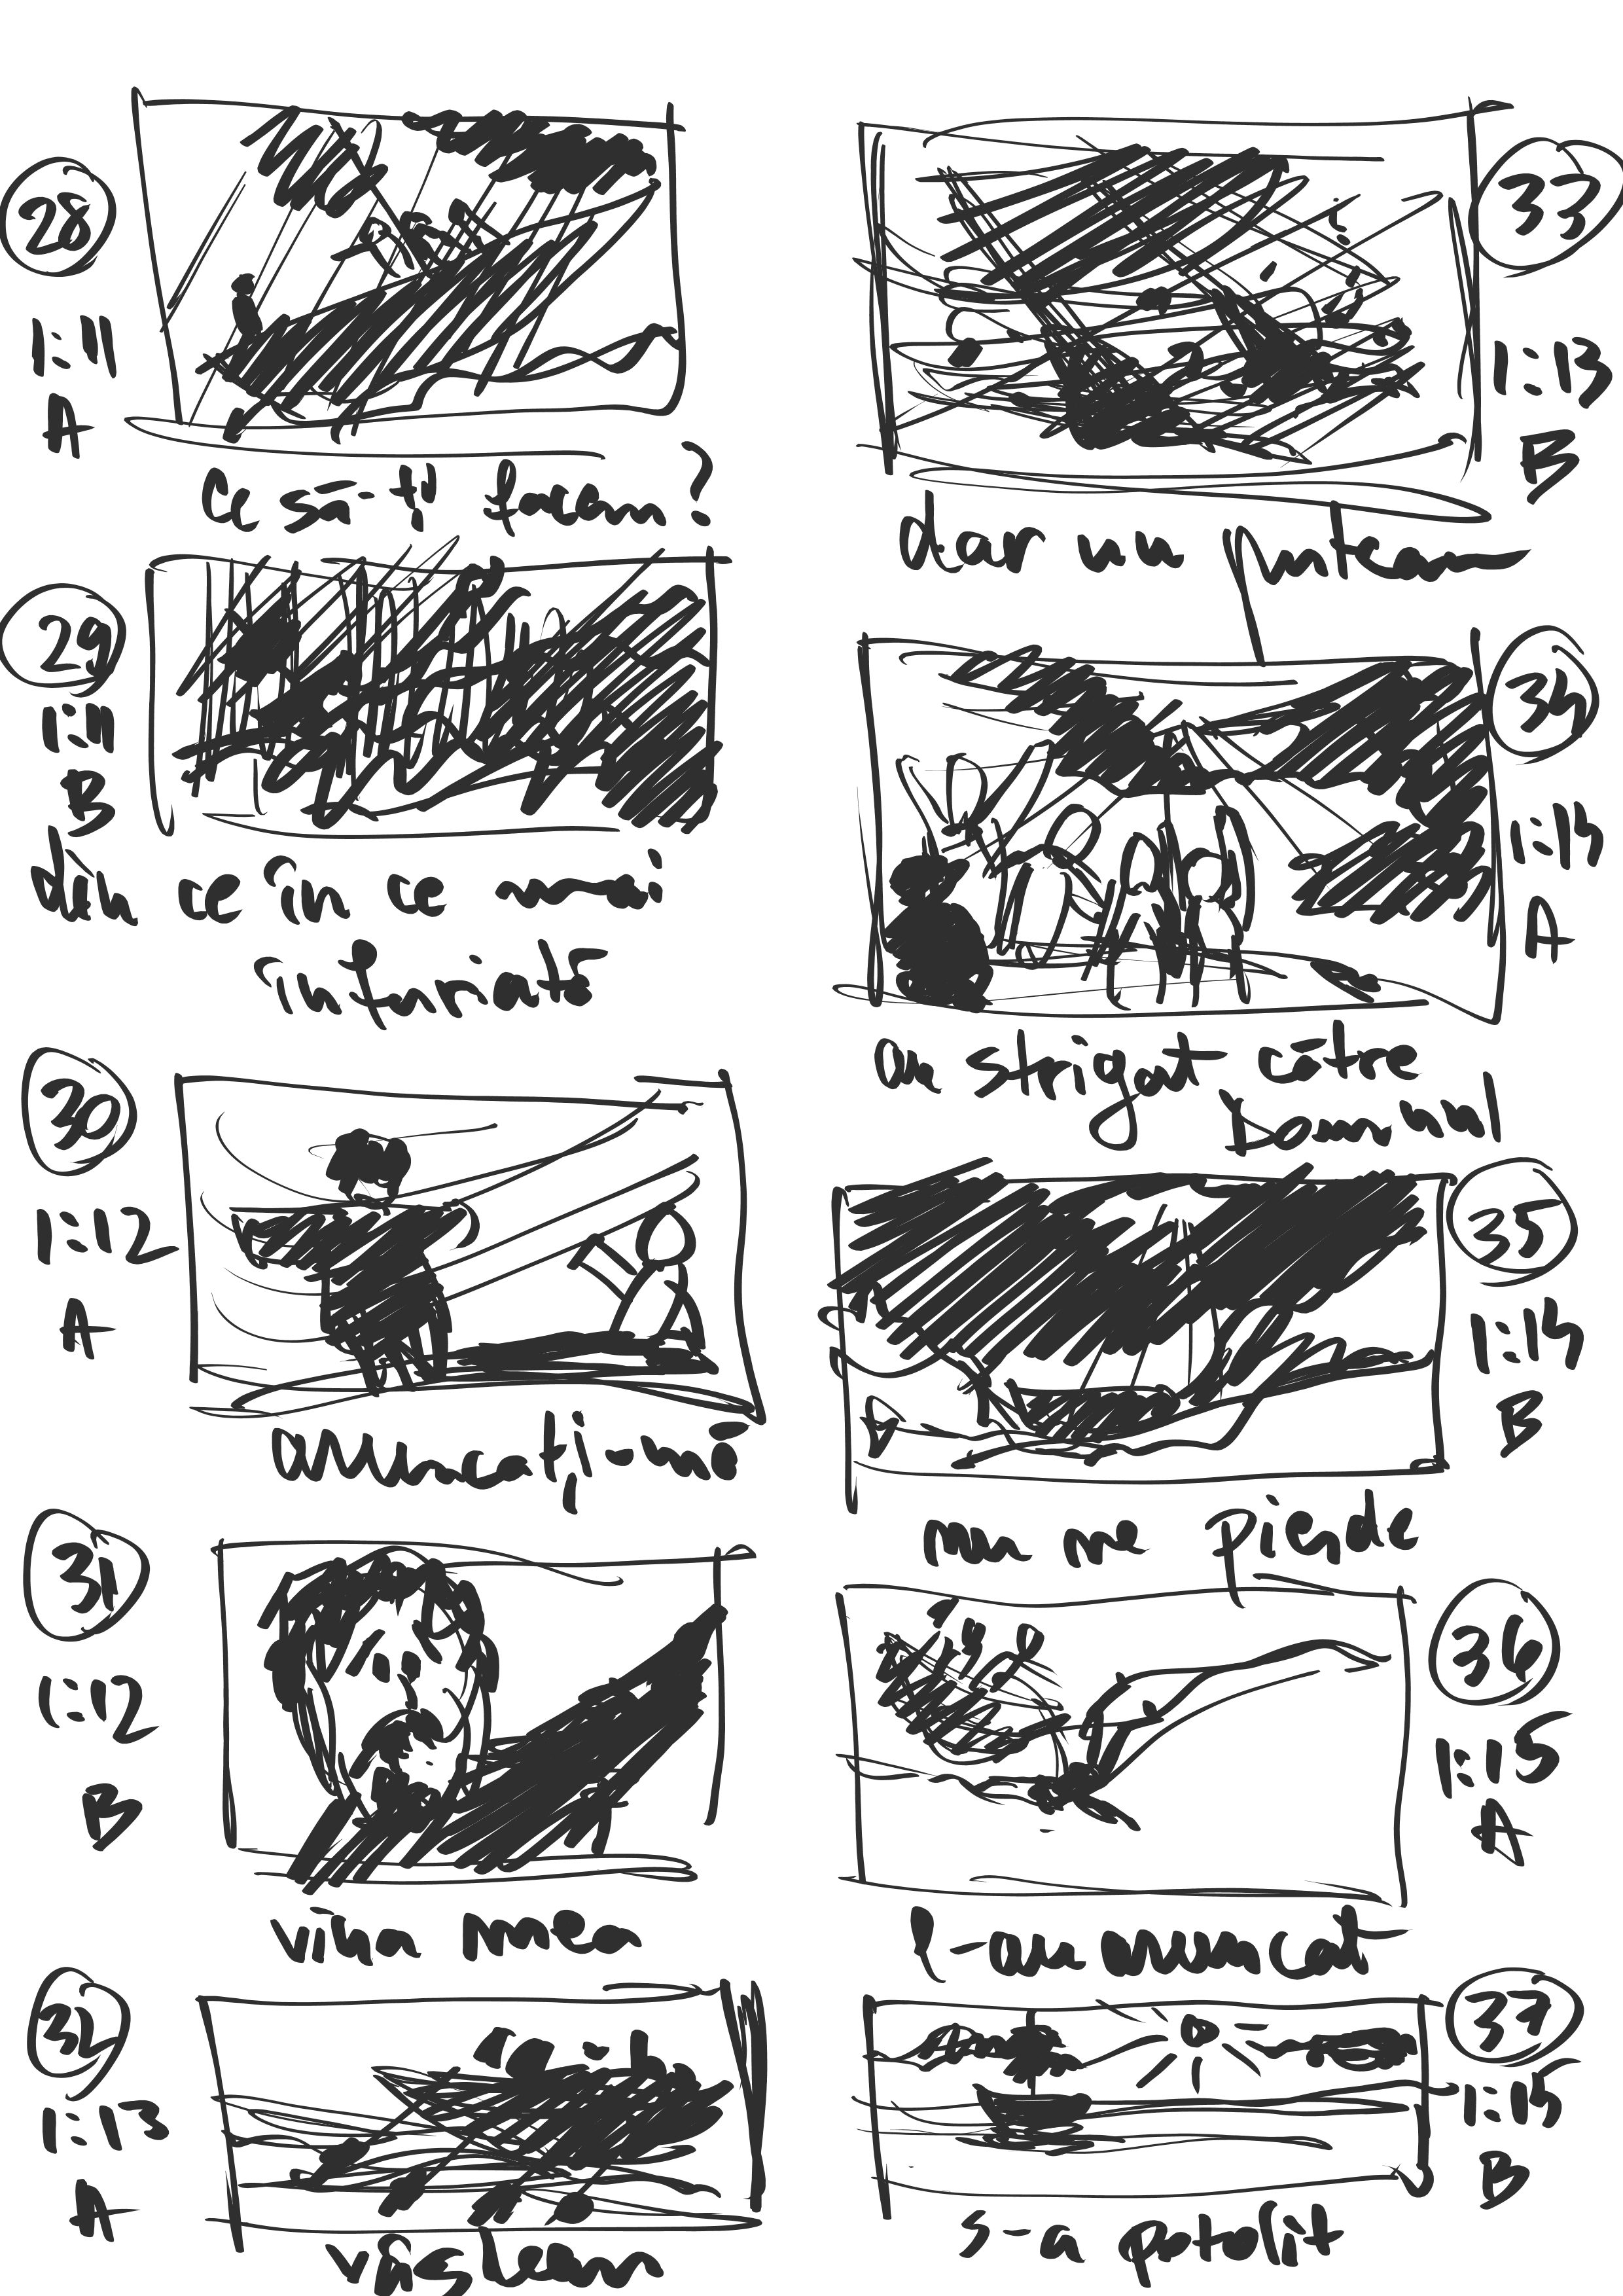 28
1:11
A
Ce să-ți facem?
29
1:11
B
din ce în ce mai
înfuriată
30
1:12
A
Aruncați-mă
31
1:12
B
vina mea
32
1:13
A
vâsleau
33
1:13
B
dar nu puteau
34
1:14
A
au strigat către
Domnul
35
1:14
B
nu ne pierde
36
1:15
A
l-au aruncat
37
1:15
B
s-a potolit